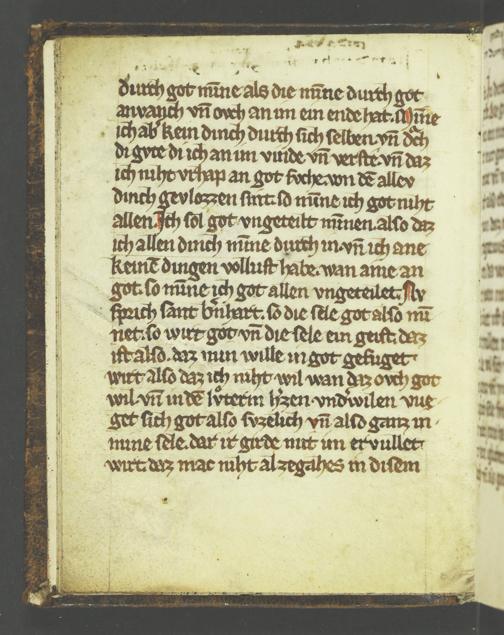 durch got mīne als die mīne durch got
anvanch vn̄ ovch an im ein ende hat. so mīne
ich ab' kein dinch durch sich selben. vn̄ doͮch
di gvte di ich an im vinde vn̄ verste. vn̄ daz
ich niht vrhap an got svche. von dē allev
dinch gevlozzen sint. so mīne ich got niht
allen. Ich sol got vngeteilt mīnen. also daz
ich allen dinch mīne durch in. vn̄ ich ane
keinē dingen vollust habe. wan a an
got. so mīne ich got allen vngeteilet. Nv
sprich sant b'nhart. so die sele got also mī
net. so wirt got vn̄ die sele ein geist. daz
ist also. daz min wille in got gefuget
wirt also daz ich niht wil wan daz ovch got
wil. vn̄ in dē lvterm h'zen vnd' wilen vue
get sich got also svzelich vn̄ also ganz in
mine sele. daz ir girde mit im ervullet
wirt. daz mac niht al zegahes in disem